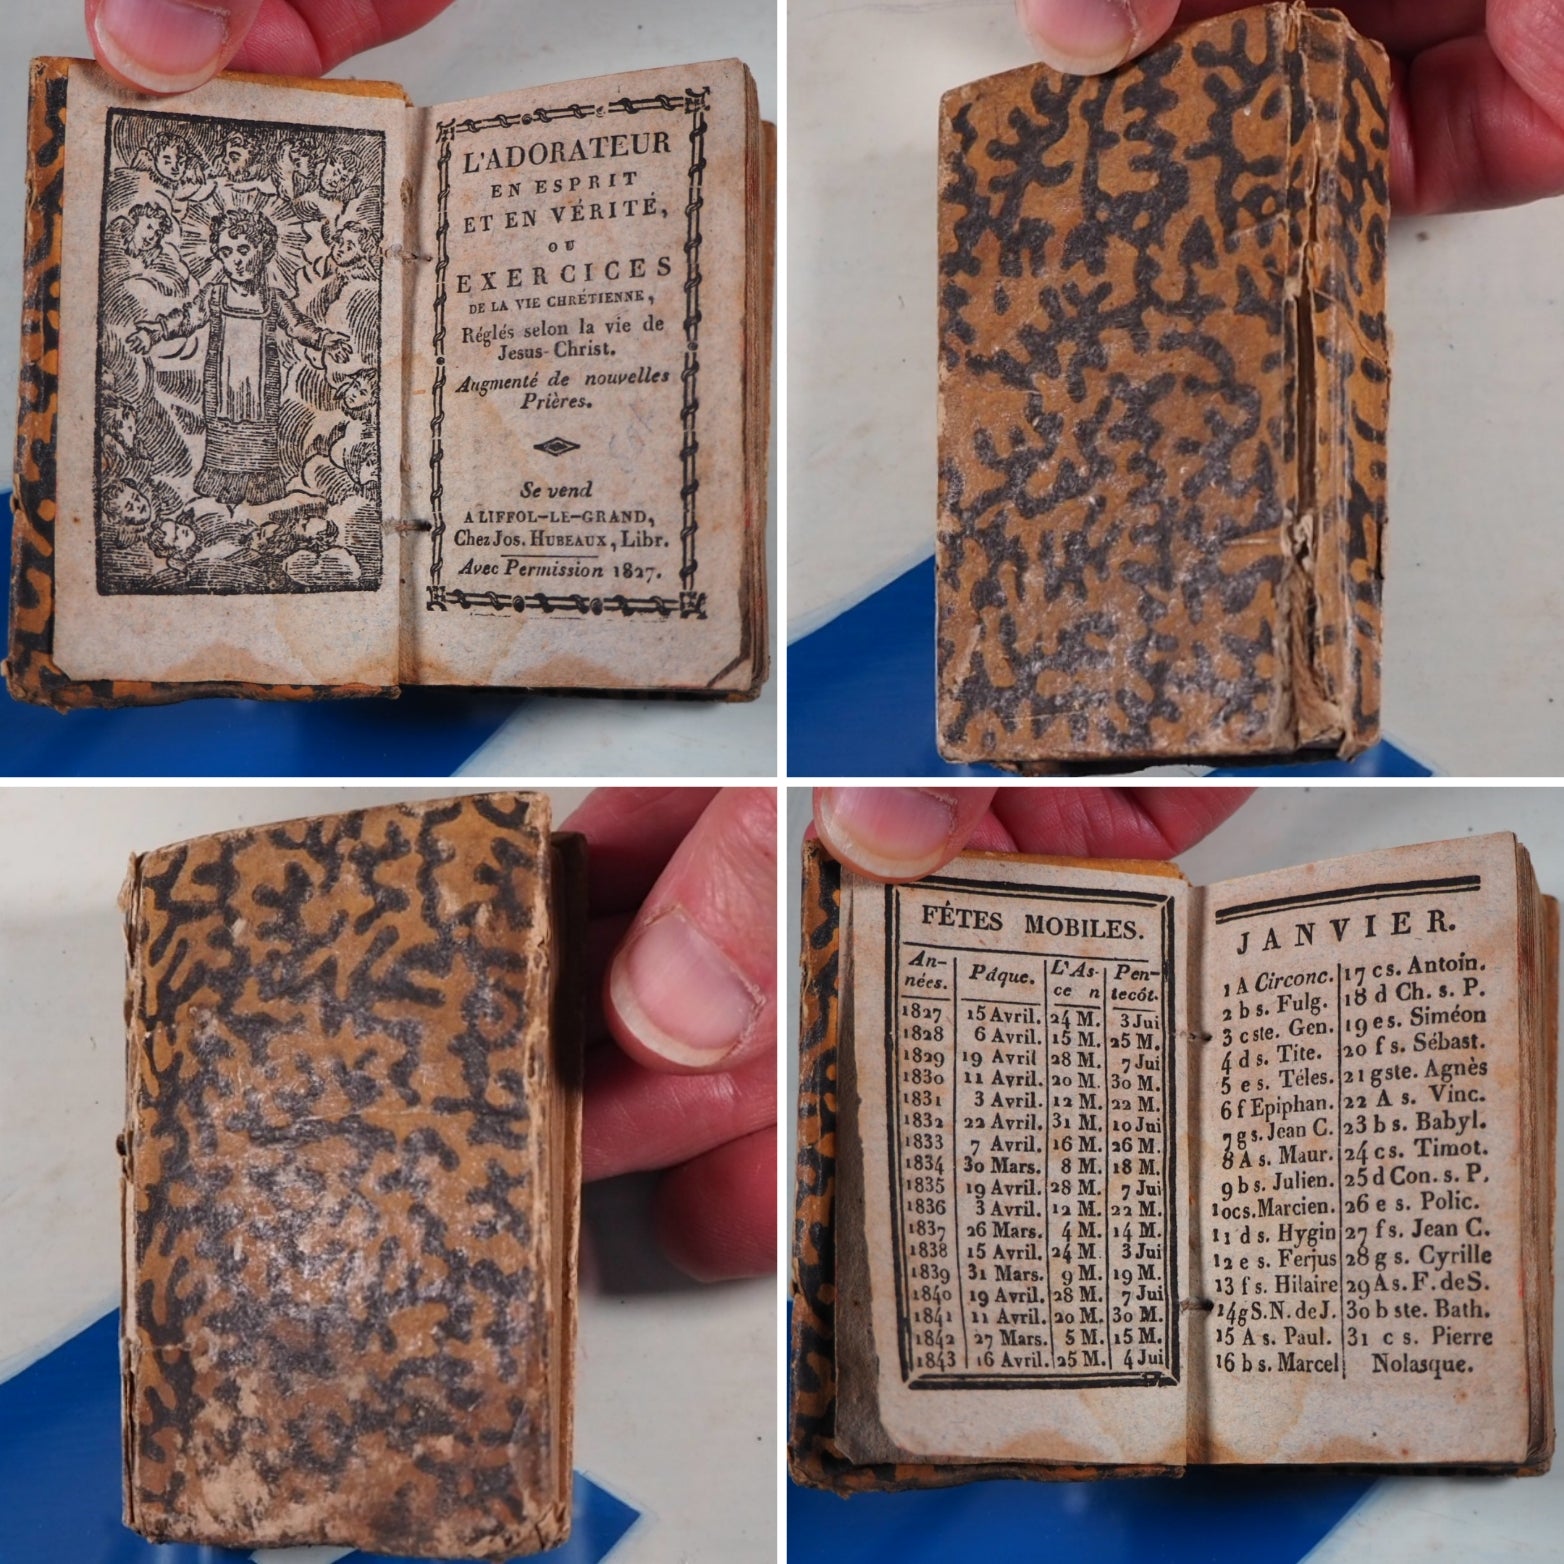 L'ADORATEUR
EN ESPRIT
ET EN VÉRITÉ,
OU
EXERCICES
DE LA VIE CHRÉTIENNE,
Réglés selon la vie de
Jesus-Christ.
Augmenté de nouvelles
Prières.
Se vend
A LIFFOL-LE-GRAND,
Chez Jos. HUBEAUX, Libr.
Avec Permission 1827.
FÉTES MOBILES.
An-nées. Pâque. L'As-ce n Pen-tecôt.
1827 15 Avril. 24 M. 3 Jui
1828 6 Avril. 15 M. 25 M.
1829 19 Avril 28 M. 7 Jui
1830 11 Avril. 20 M. 30 M.
1831 3 Avril. 12 M. 22 M.
1832 22 Avril. 31 M. 10 Jui
1833 7 Avril. 16 M. 26 M.
1834 30 Mars. 8 M. 18 M.
1835 19 Avril. 28 M. 7 Jui
1836 3 Avril. 12 M. 22 M.
1837 26 Mars. 4 M. 14 M.
1838 15 Avril. 24 M. 3 Jui
1839 31 Mars. 9 M. 19 M.
1840 19 Avril. 28 M. 7 Jui
1841 11 Avril. 20 M. 30 M.
1842 27 Mars. 5 M. 15 M.
1843 16 Avril. 25 M. 4 Jui
JANVIER.
1 A Circonc.
2 b s. Fulg.
3 c ste. Gen.
4 d s. Tite.
5 e s. Téles.
6 f Epiphan.
7 g s. Jean C.
8 A s. Maur.
9 b s. Julien.
10 c s. Marcien.
11 d s. Hygin
12 e s. Ferjus
13 f s. Hilaire
14 g S. N. de J.
15 A s. Paul.
16 b s. Marcel
17 c s. Antoin.
18 d Ch. s. P.
19 e s. Siméon
20 f s. Sébast.
21 g ste. Agnès
22 A s. Vinc.
23 b s. Babyl.
24 c s. Timot.
25 d Con. s. P.
26 e s. Polic.
27 f s. Jean C.
28 g s. Cyrille
29 A s. F. de S.
30 b ste. Bath.
31 c s. Pierre
Nolasque.